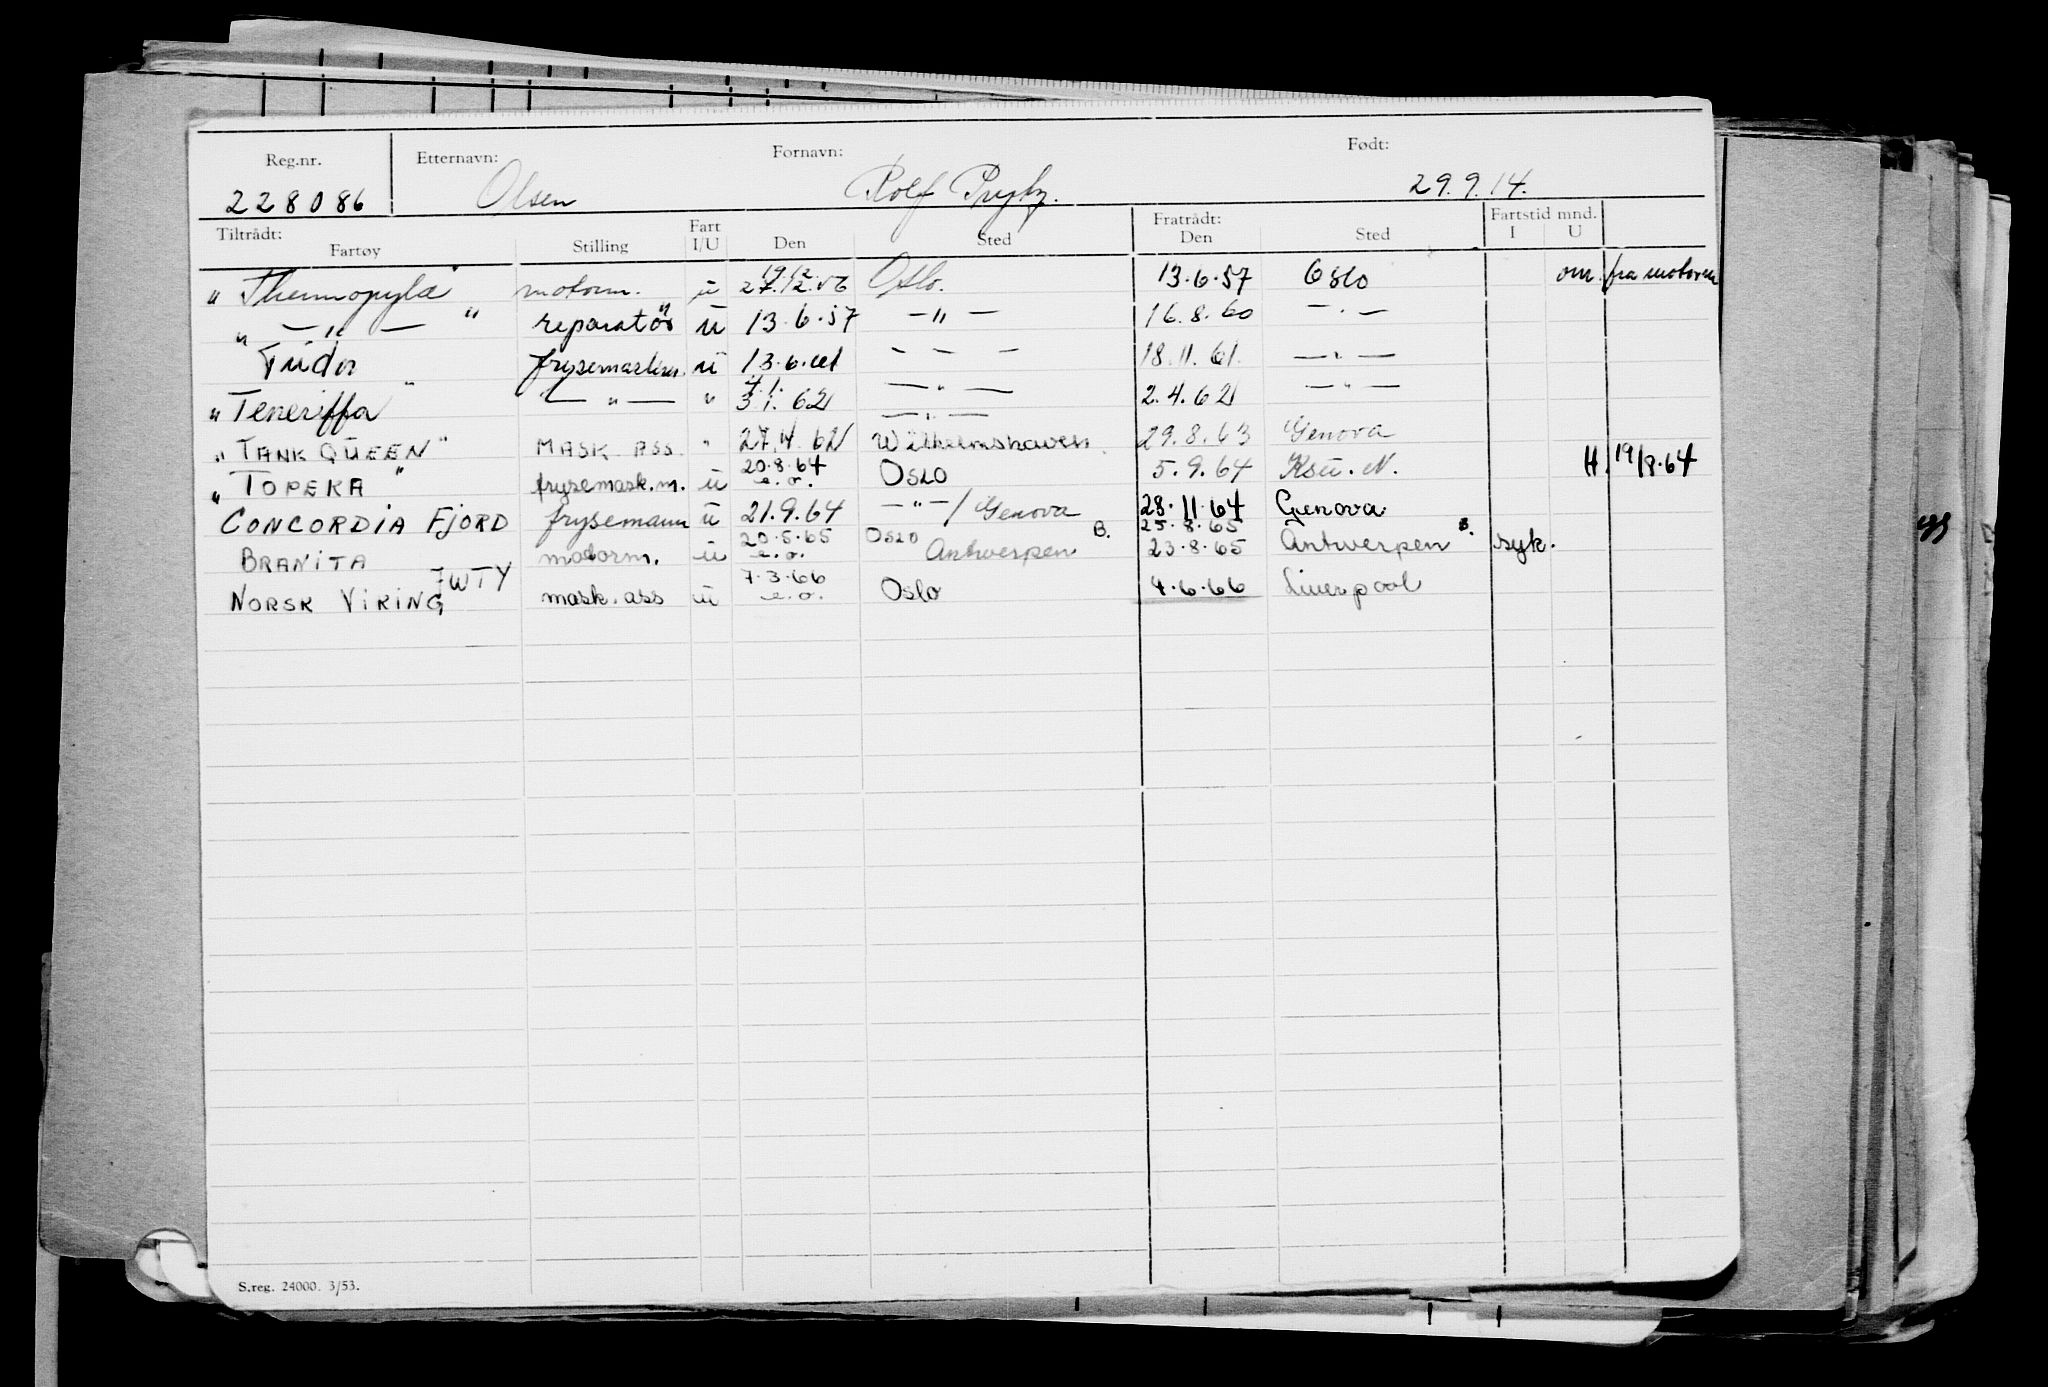 Reg.nr. Etternavn: Fornavn: Født:
228086 Olsen Rolf 29.9.14.
Tiltrådt: Fart Fratrådt: Fartstid mnd.
Fartøy Stilling I/U Den Sted Den Sted I U
19.12
" Thermopylæ " motorm. u 27.12.56 Oslo. 13.6.57 Oslo om. fra motorm
" — " — " reparatør u 13.6.57 — " — 16.8.60 — " —
Tudor frysemaskm. u 13.6.61 — " — 18.11.61. — " —
4.1.
" Teneriffa " — " — " 3.1.62 — " — 2.4.62 — " —
— " —
" TANK QUEEN " MASK. ASS. " 27.4.62 Wilhelmshaven. 29.8.63 Genova
20.8.64
" TOPEKA " frysemask.m. u e.o. OSLO 5.9.64 Ksu. N. H. 19/8.64
CONCORDIA FJORD frysemann u 21.9.64 — " — / Genova 28.11.64 Genova
20.5.65 OSLO B. 25.8.65 B.
BRANITA motorm. u e.o. Antwerpen 23.8.65 Antwerpen syk.
JWTY 7.3.66
NORSK VIKING mask.ass u e.o. Oslo 4.6.66 Liverpool
S.reg. 24000. 3/53.